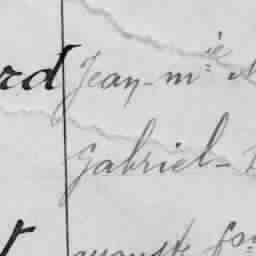 rd Jean-m.ie
Gabriel-
auguste fs